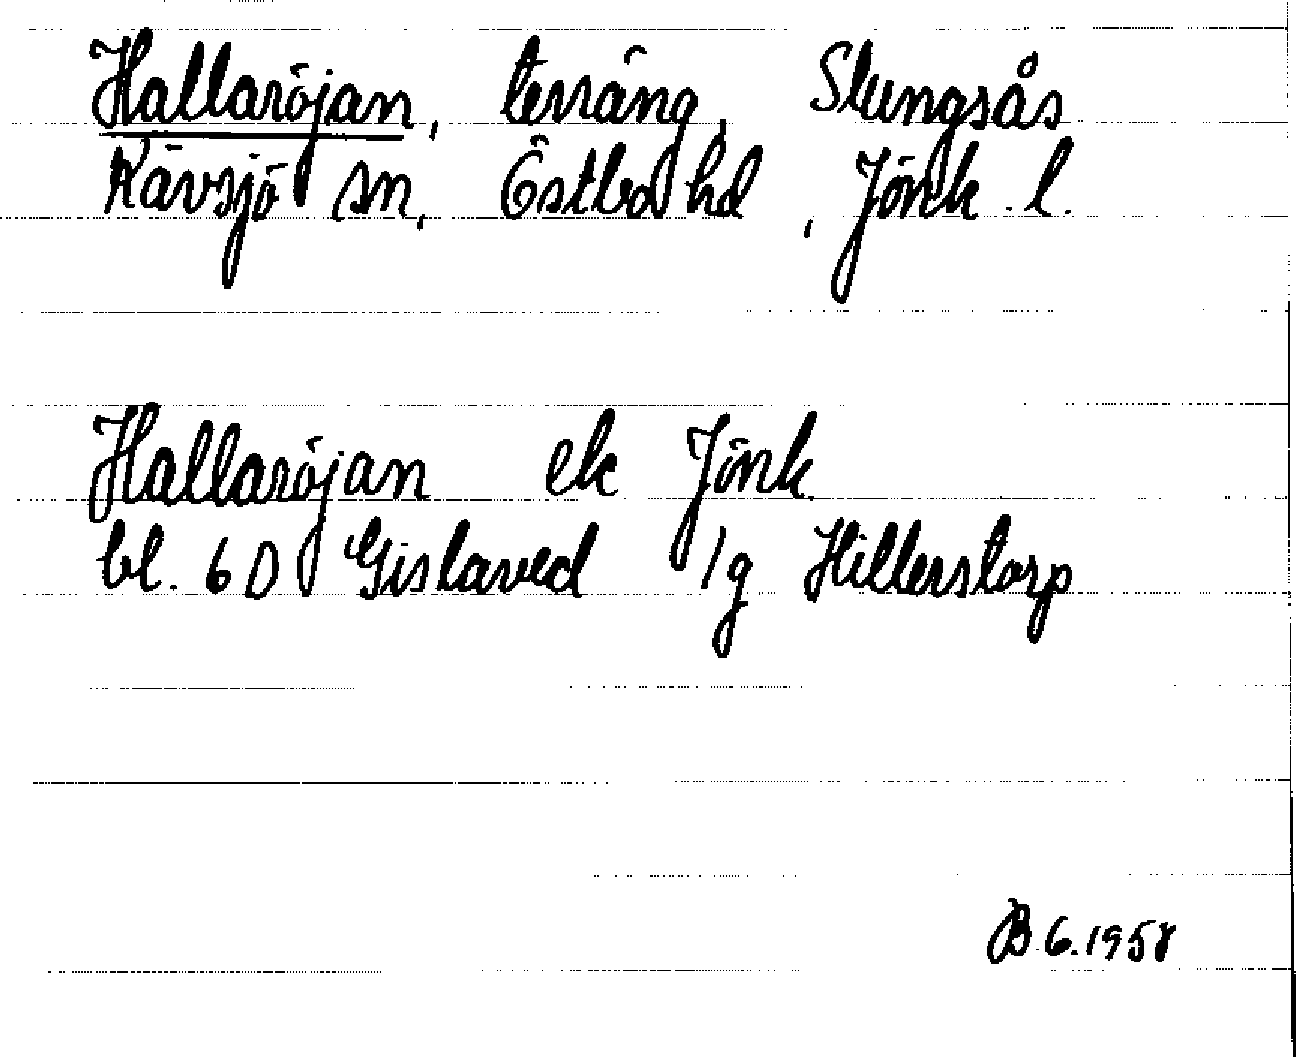 Hallaröjan, terräng, Slungsås
Kävsjö sn, Östbo hd, Jönk. l.
Hallaröjan ek Jönk.
bl. 6 D Gislaved 1g Hillerstorp
B 6.1958